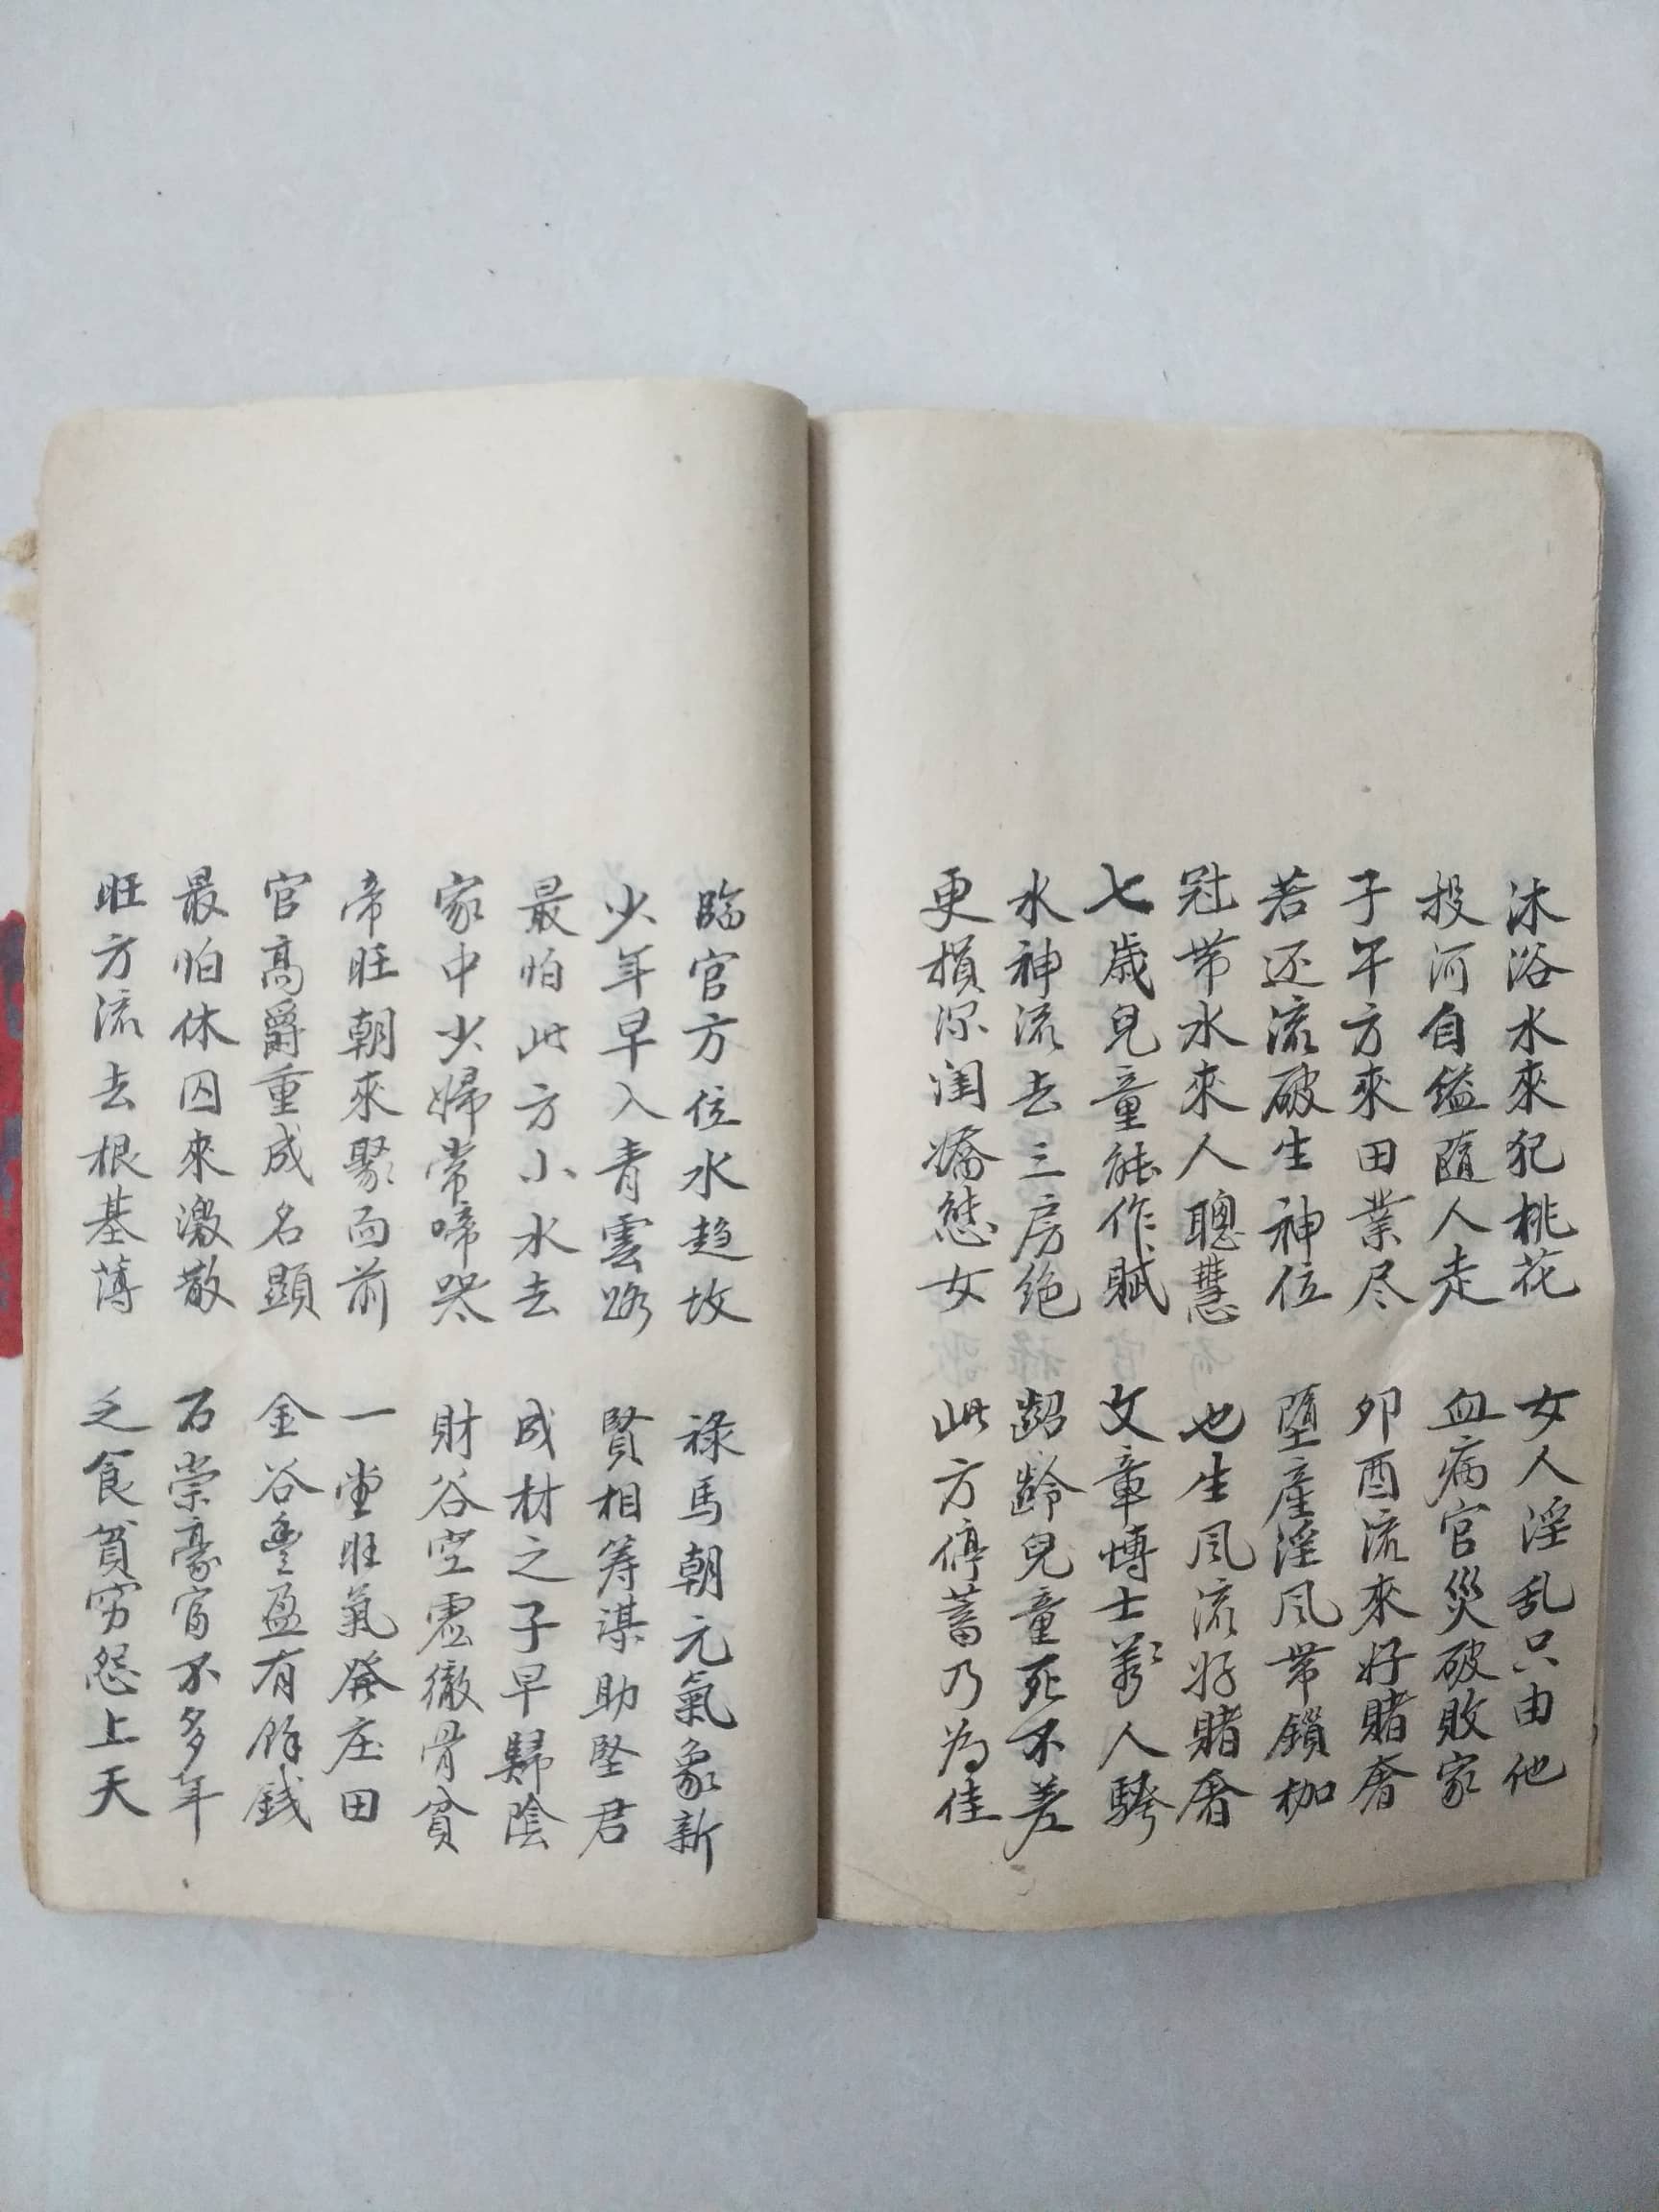 沐浴水來犯桃花　女人淫乱只由他
投河自缢隨人走　血病官災破敗家
子午方來田業尽　卯酉流來好賭奢
若还流破生神位　堕産淫风帶鎖枷
冠帶水來人聰慧　也生风流好賭奢
七歳兒童能作賦　文章博士萬人誇
水神流去三房绝　髫齡兒童死不差
更損深闺嬌態女　此方停蓄乃为佳
臨官方位水趋坟　祿馬朝元氣象新
少年早入青雲路　賢相筹謀助聖君
最怕此方小水去　成材之子早歸陰
家中少婦常啼哭　財谷空虛徹骨貧
帝旺朝來聚面前　一堂旺氣發庄田
官高爵重成名顯　金谷豊盈有餘錢
最怕休囚來激散　石崇豪富不多年
旺方流去根基薄　乏食貧穷怨上天